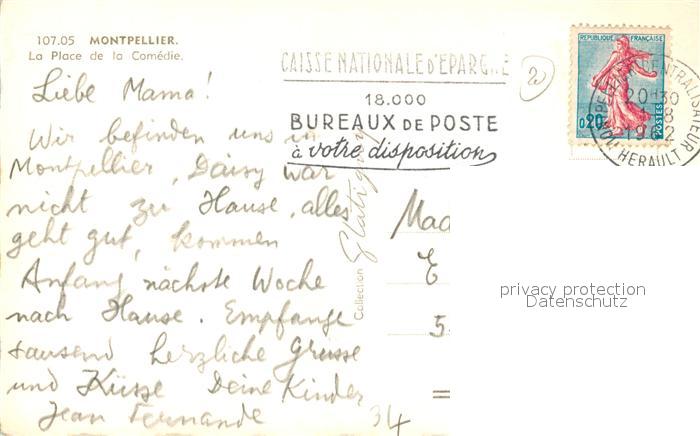 107.05 MONTPELLIER.
La Place de la Comédie.
Liebe Mama!
Wir befinden uns in
Montpellier, Daisy war
nicht zu Hause, alles
geht gut, kommen
Anfang nächste Woche
nach Hause. Empfange
tausend herzliche Grüsse
und Küsse Deine Kinder
Jean Fernande
34
Collection Glatigny
CAISSE NATIONALE d'EPARGNE
18.000
BUREAUX DE POSTE
à votre disposition
2
REPUBLIQUE FRANÇAISE
0,20
POSTES
MONTPELLIER CENTRALISATEUR
20 30
1962
HERAULT
Mad
E
5
privacy protection
Datenschutz